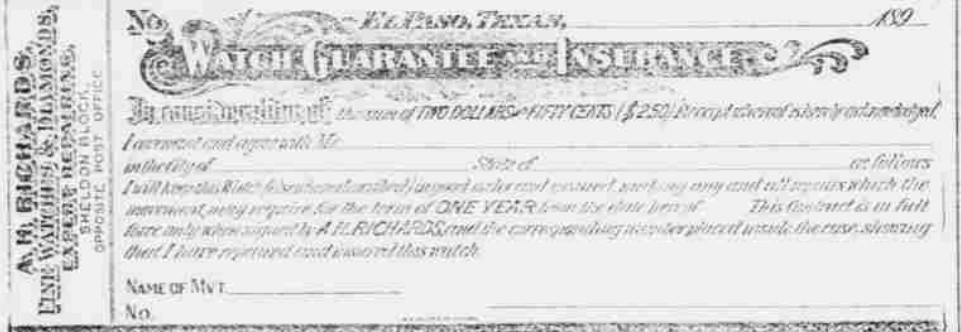 A. H. RICHARDS,
FINE WATCHES & DIAMONDS,
EXPERT REPAIRING,
SHELDON BLOCK,
OPPOSITE POST OFFICE
No. EL PASO, TEXAS, 189
WATCH GUARANTEE AND INSURANCE
In consideration of the sum of TWO DOLLARS & FIFTY CENTS ($2.50) Receipt whereof is hereby acknowledged,
I covenant and agree with Mr.
in the City of State of as follows
I will keep this Watch in good order and any and all repairs which the
movement may require for the term of ONE YEAR from the date hereof. This Contract is in full
force only when signed by A.H. RICHARDS, and the corresponding number placed inside the case, showing
that I have repaired and insured this watch.
NAME OF MVT.
No.